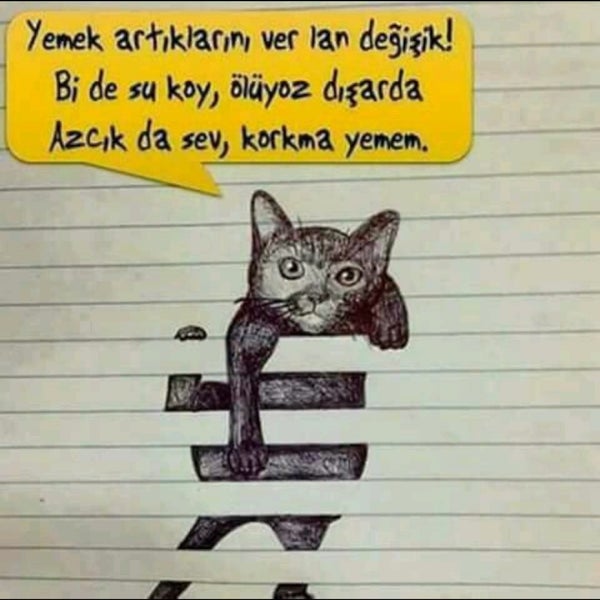 Yemek artıklarını ver lan değişik!
Bi de su koy, ölüyoz dışarda
Azcık da sev, korkma yemem.